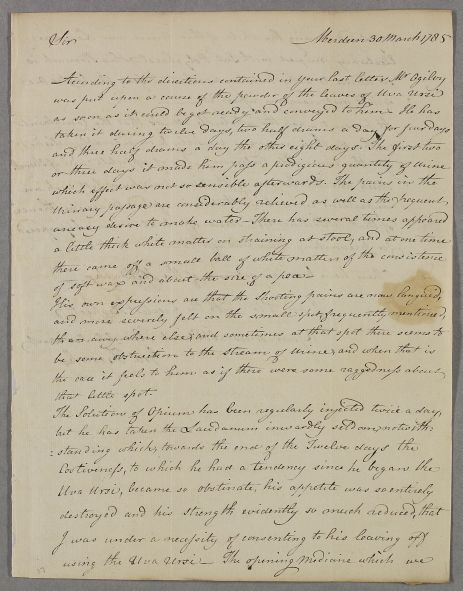 Sir Aberdeen 30 March 1785
According to the directions contained in your last letter Mr Ogilvy
was put upon a cause of the powder of the leaves of Uva Ursi
as soon as it could be got ready and conveyed to him. He has
taken it during twelve days, two half drams a day for four days
and three half drams a day the other eight days. The first two
or three days it made him pass a prodigious quantity of Urine
which effect was not so sensible afterwards. The pains in the
Urinary passage are considerably relieved as well as the frequent,
uneasy desire to make water - There has several times appeared
a little thick white matter on straining at stool, and at one time
there came off a small ball of white matter of the consistence
of soft wax and about the size of a pea -
His own expressions are that the Shooting pains are now languid,
and more severely felt on the small spot frequently mentioned,
than any where else; and sometimes at that spot there seems to
be some obstruction to the Stream of Urine, and when that is
the case it feels to him as if there were some raggedness about
that little spot.
The Solution of Opium has been regularly injected twice a day,
but he has taken the Laudanum inwardly seldom, notwith:
:standing which, towards the end of the Twelve days the
Costiveness, to which he had a tendency since he began the
Uva Ursi, became so obstinate, his appetite was so entirely
destroyed and his strength evidently so much reduced, that
I was under a necessity of consenting to his leaving off
using the Uva Ursi - The opening medicine which we